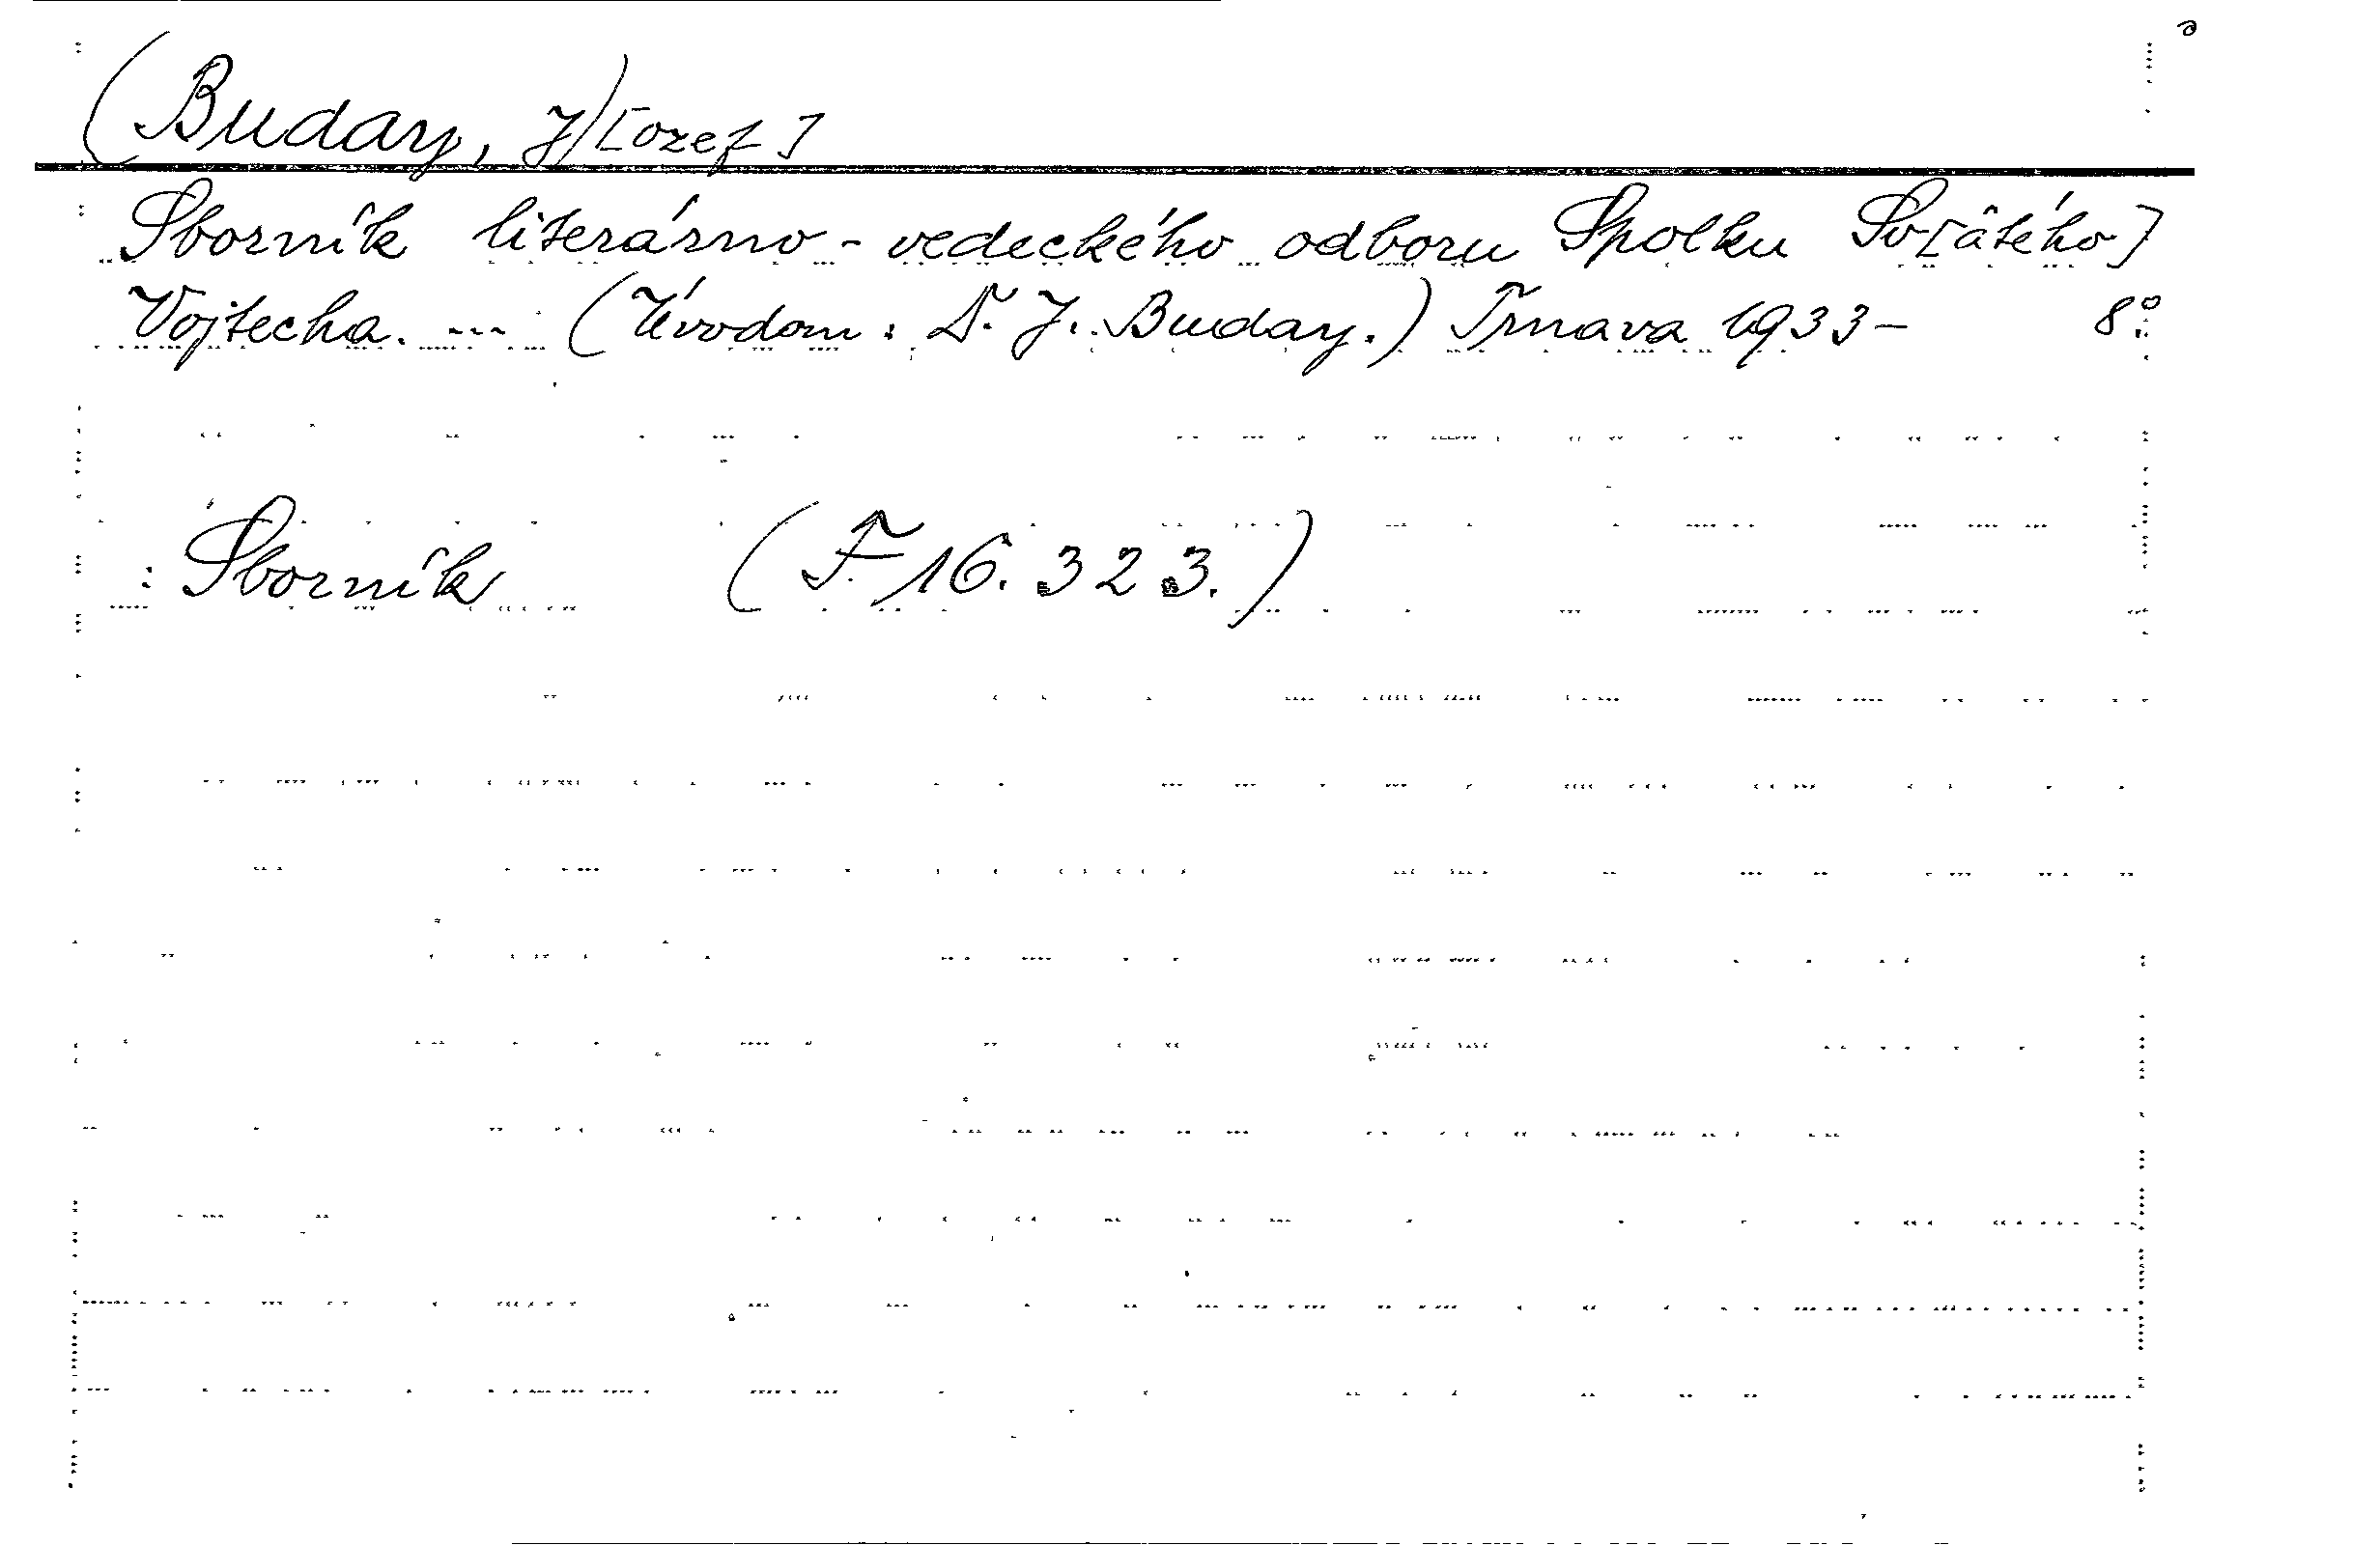 (Buday, J)[ozef]
Sborník literárno-vedeckého odboru Spolku Sv[ätého]
Vojtecha. --- (Úvodom: D. J. Buday.) Trnava 1933- 8°
: Sborník (F 16.323.)